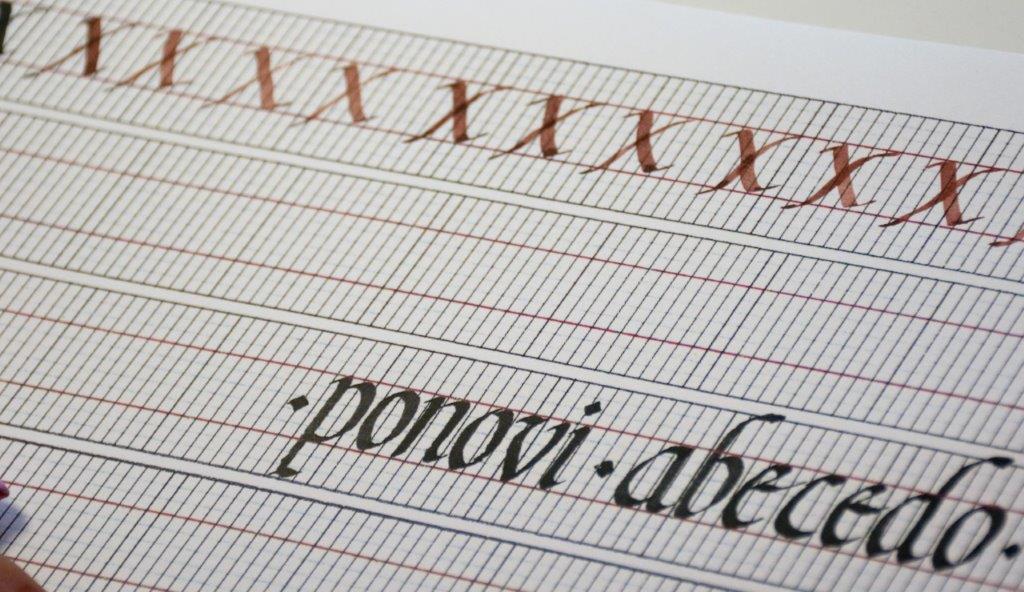 x x x x x x x x x x
·ponovi·abecedo·